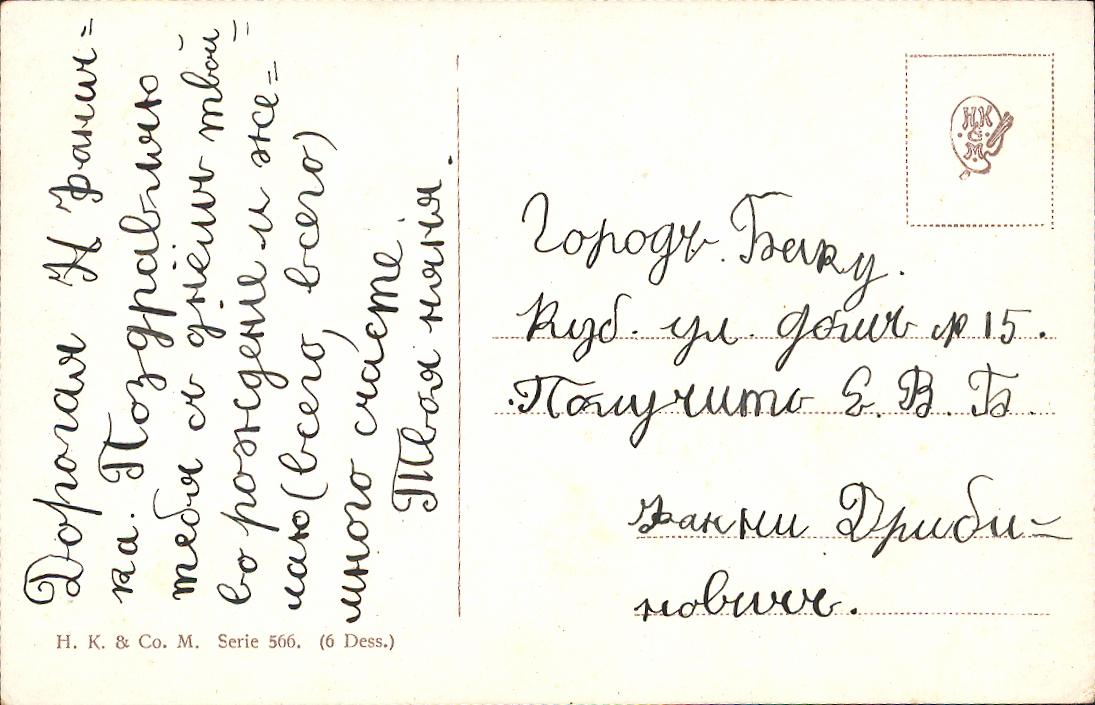 Дорогая Н Фанич=
ка. Поздравляю
тебя с днёмъ твои=
во рождение и же=
лаю (всего, всего)
много счасте
Твоя няня.
H. K. & Co. M. Serie 566. (6 Dess.)
H K
&
M.
Городъ. Баку.
Куб. ул. домъ № 15.
Получить Е. В. Б.
Фанни Дриби-
новичъ.